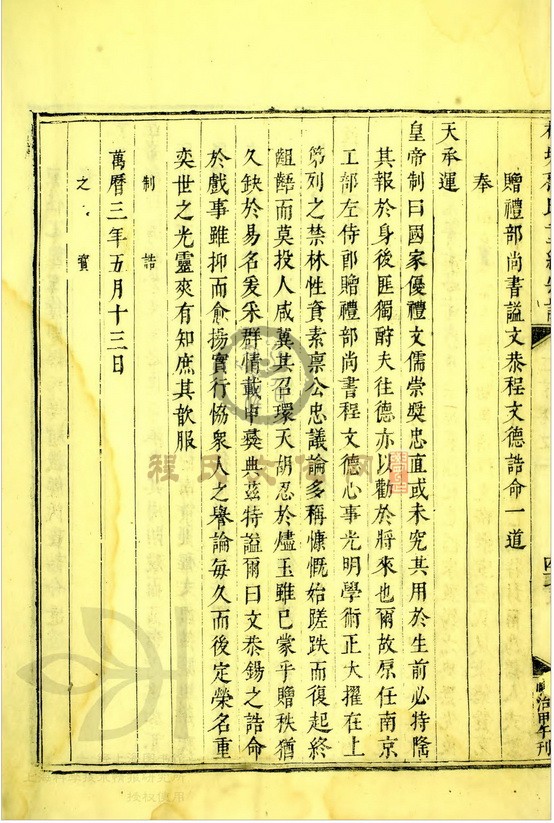 贈禮部尚書謚文恭程文德誥命一道
奉
天承運
皇帝制曰國家優禮文儒崇奬忠直或未究其用於生前必特隆
其報於身後匪獨酧夫往德亦以勸於將來也爾故原任南京
工部左侍郎贈禮部尚書程文德心事光明學術正大擢在上
第列之禁林性資素禀公忠議論多稱慷慨始蹉跌而復起終
齟齬而莫投人咸冀其召環天胡忍於燼玉雖已蒙乎贈秩猶
久缺於易名爰采群情載申彝典茲特謚爾曰文恭錫之誥命
於戲事雖抑而愈揚實行恊衆人之譽論毎久而後定榮名重
奕世之光靈爽有知庶其歆服
制誥
萬曆三年五月十三日
之寳
治甲午刊
授权使用